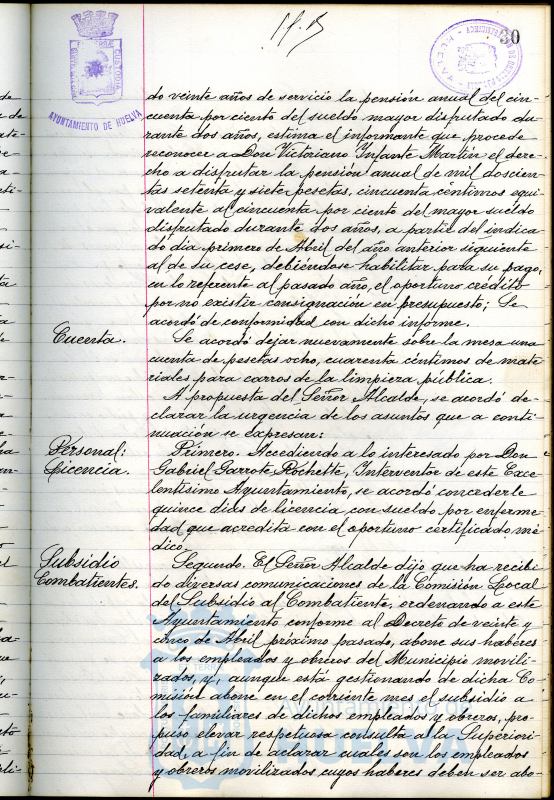 30
AYUNTAMIENTO DE HUELVA
do veinte años de servicio la pensión anual del cin-
cuenta por ciento del sueldo mayor disfrutado du-
rante dos años, estima el informante que procede
reconocer a Don Victoriano Infante Martín el dere-
cho a disfrutar la pensión anual de mil doscien-
tas setenta y siete pesetas, cincuenta céntimos equi-
valente al cincuenta por ciento del mayor sueldo
disfrutado durante dos años, a partir del indica-
do día primero de Abril del año anterior siguiente
al de su cese, debiéndose habilitar para su pago,
en lo referente al pasado año, el oportuno crédito
por no existir consignación en presupuesto; Se
acordó de conformidad con dicho informe.
Cuenta.
Se acordó dejar nuevamente sobre la mesa una
cuenta de pesetas ocho, cuarenta céntimos de mate-
riales para carros de la limpieza pública.
A propuesta del Señor Alcalde, se acordó de-
clarar la urgencia de los asuntos que a conti-
nuación se expresan:
Personal:
Licencia.
Primero. Accediendo a lo interesado por Don
Gabriel Garrote Rochette, Interventor de este Exce-
lentísimo Ayuntamiento, se acordó concederle
quince días de licencia con sueldo por enferme-
dad que acredita con el oportuno certificado mé-
dico.
Subsidio
Combatientes.
Segundo. El Señor Alcalde dijo que ha recibi-
do diversas comunicaciones de la Comisión Local
del Subsidio al Combatiente, ordenando a este
Ayuntamiento conforme al Decreto de veinte y
cinco de Abril próximo pasado, abone sus haberes
a los empleados y obreros del Municipio movili-
zados, y, aunque está gestionando de dicha Co-
misión abone en el corriente mes el subsidio a
los familiares de dichos empleados y obreros, pro-
puso elevar respetuosa consulta a la Superiori-
dad, a fin de aclarar cuales son los empleados
y obreros movilizados cuyos haberes deben ser abo-
Ayuntamiento de
HUELVA